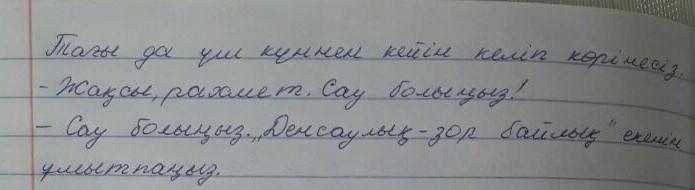 Тағы да үш күннен кейін келіп көрінесіз.
- Жақсы, рахмет. Сау болыңыз!
- Сау болыңыз. „Денсаулық - зор байлық" екенін
ұмытпаңыз.